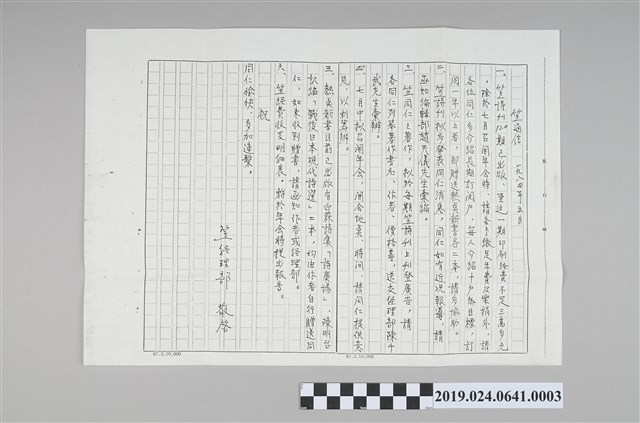 笠通信
一九八四年五月
一、笠詩刊121期已出版、至這一期印刷經費不足三萬多元
，除於七月召開年會時、請各多繳足年費及樂捐外，請
各位同仁多介紹長期訂閱戶，每人介紹十戶為目標，訂
閱一年以上者，即贈送熱點新書各二本，請多協助。
二、笠詩刊擬多發表同仁消息，同仁如有近況報導，請
函知編輯部趙天儀先生彙編。
三、笠同仁之著作，擬於每期笠詩刊上刊登廣告，請
各同仁列舉著作書名、作者、價格等，送交經理部陳千
武先生彙辦。
四、七月中擬召開年會，開會地點、時間，請同仁提供意
見，以利籌辦。
五、熱點新書目前已出版有白萩詩集「詩廣場」、陳明台
試論「戰後日本現代詩選」二本，均由作者自行贈送同
仁，如未收到贈書，請函知作者或經理部。
六、笠經費收支明細表，將於年會時提出報告。
祝
同仁愉快，多加連繫。
笠經理部 敬啓
67.3.10,000
67.3.10,000
2019.024.0641.0003